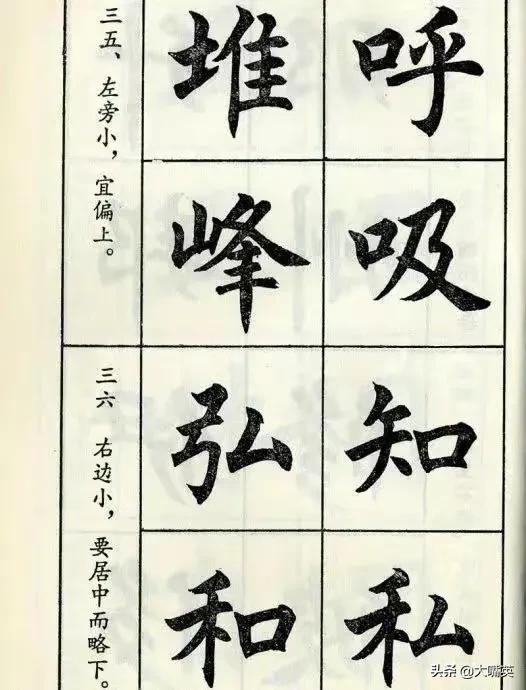 三五、左旁小，宜偏上。
呼
堆
吸
峰
三六 右边小，要居中而略下。
知
弘
私
和
头条 @大嘴英